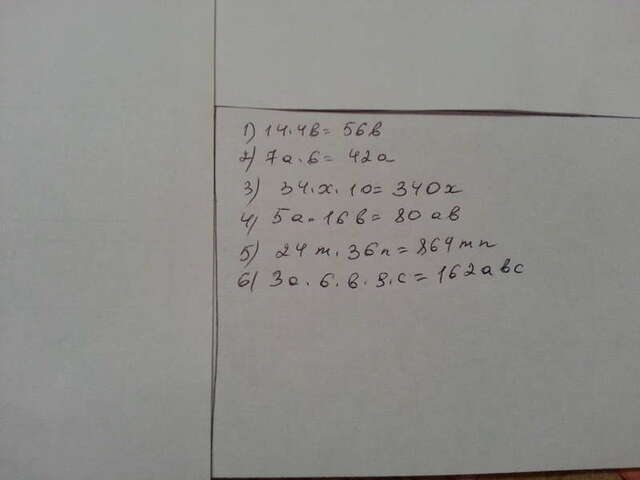 1) 14·4в = 56в
2) 7а·6 = 42а
3) 34·х·10 = 340х
4) 5а·16в = 80ав
5) 24m·36n = 864mn
6) 3а·6·в·9·с = 162авс